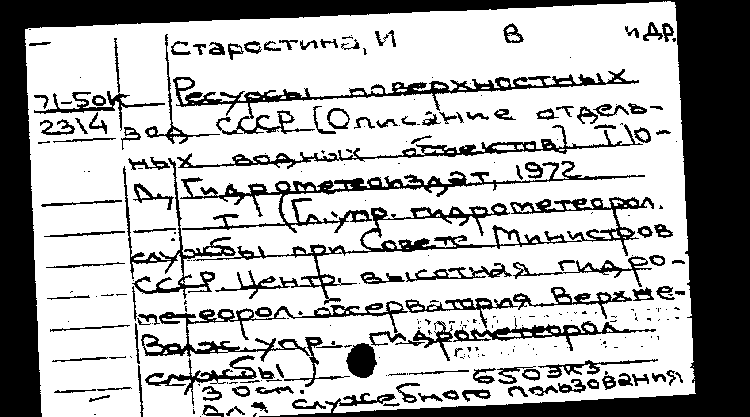 Старостина, И В и др.
71-50к Ресурсы поверхностных
2314 вод СССР [Описание отдель-
ных водных объектов]. Т.10-
Л., Гидрометеоиздат, 1972
т (Гл. упр. гидрометеорол.
службы при Совете Министров
СССР. Центр. высотная гидро-
метеорол. обсерватория Верхне-
Волж. упр. гидрометеорол.
службы)
650 экз.
Для служебного пользования